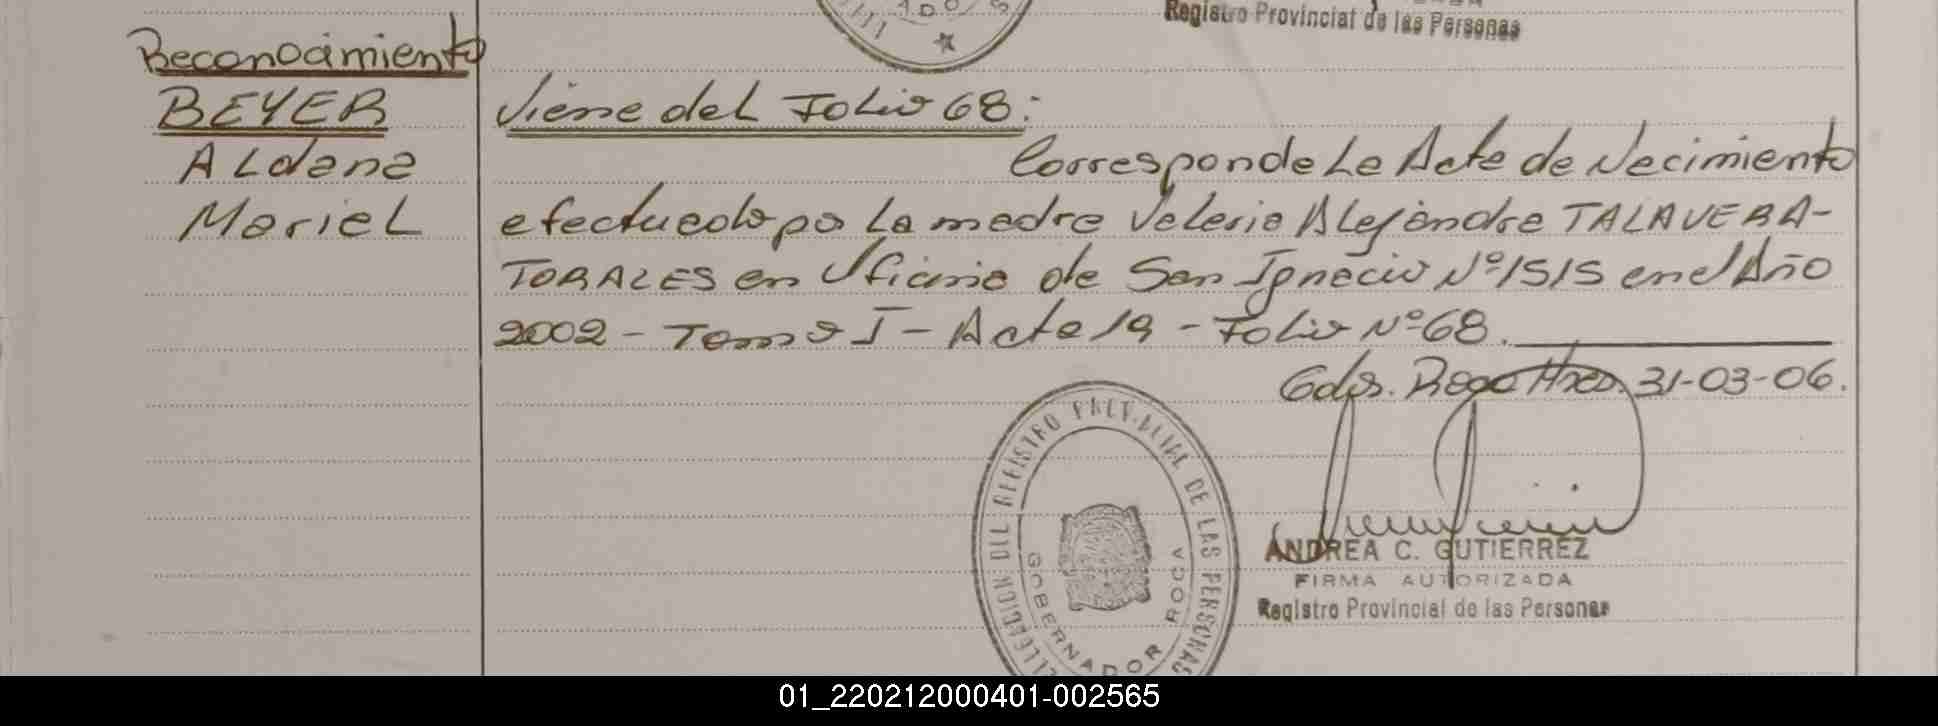 Registro Provincial de las Personas
Reconocimiento
BEYER
Aldana
Mariel
Viene del Folio 68:
Corresponde La Acta de Nacimiento
efectuado por La madre Valeria Alejandra TALAVERA-
TORALES en Oficina de San Ignacio Nº 1515 en el Año
2002 - Tomo I - Acta 19 - Folio Nº 68.
Gdor. Roca Mnes. 31-03-06.
DELEGACION DEL REGISTRO PROVINCIAL DE LAS PERSONAS
GOBERNADOR ROCA
ANDREA C. GUTIERREZ
FIRMA AUTORIZADA
Registro Provincial de las Personas
01_220212000401-002565